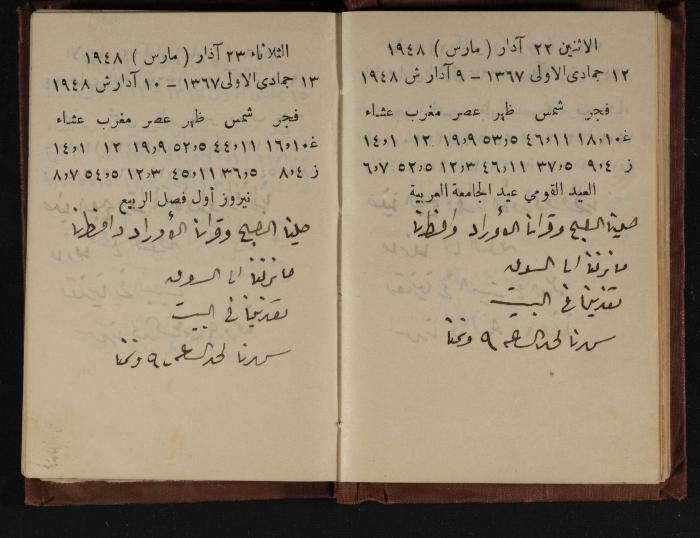 الاثنين ٢٢ آذار ( مارس ) ١٩٤٨
١٢ جمادى الاولى ١٣٦٧ – ٩ آذار ش ١٩٤٨
فجر شمس ظهر عصر مغرب عشاء
غ ١٠و١٨ ١١و٤٦ ٥و٥٣ ٩و١٩ ١٢ ١و١٤
ز ٤و٩ ٥و٣٧ ١١و٤٦ ٣و١٢ ٥و٥٢ ٧و٦
العيد القومي عيد الجامعة العربية
صلينا الصبح وقرانا الأوراد وافطرنا
ما نزلنا الى السوق
تغدينا في البيت
سهرنا لحد الساعه ٩ ونمنا
الثلاثاء ٢٣ آذار ( مارس ) ١٩٤٨
١٣ جمادى الاولى ١٣٦٧ – ١٠ آذار ش ١٩٤٨
فجر شمس ظهر عصر مغرب عشاء
غ ١٠و١٦ ١١و٤٤ ٥و٥٢ ٩و١٩ ١٢ ١و١٤
ز ٤و٨ ٥و٣٦ ١١و٤٥ ٣و١٢ ٥و٥٤ ٧و٨
نيروز أول فصل الربيع
صلينا الصبح وقرانا الأوراد وافطرنا
ما نزلنا الى السوق
تغدينا في البيت
سهرنا لحد الساعه ٩ ونمنا